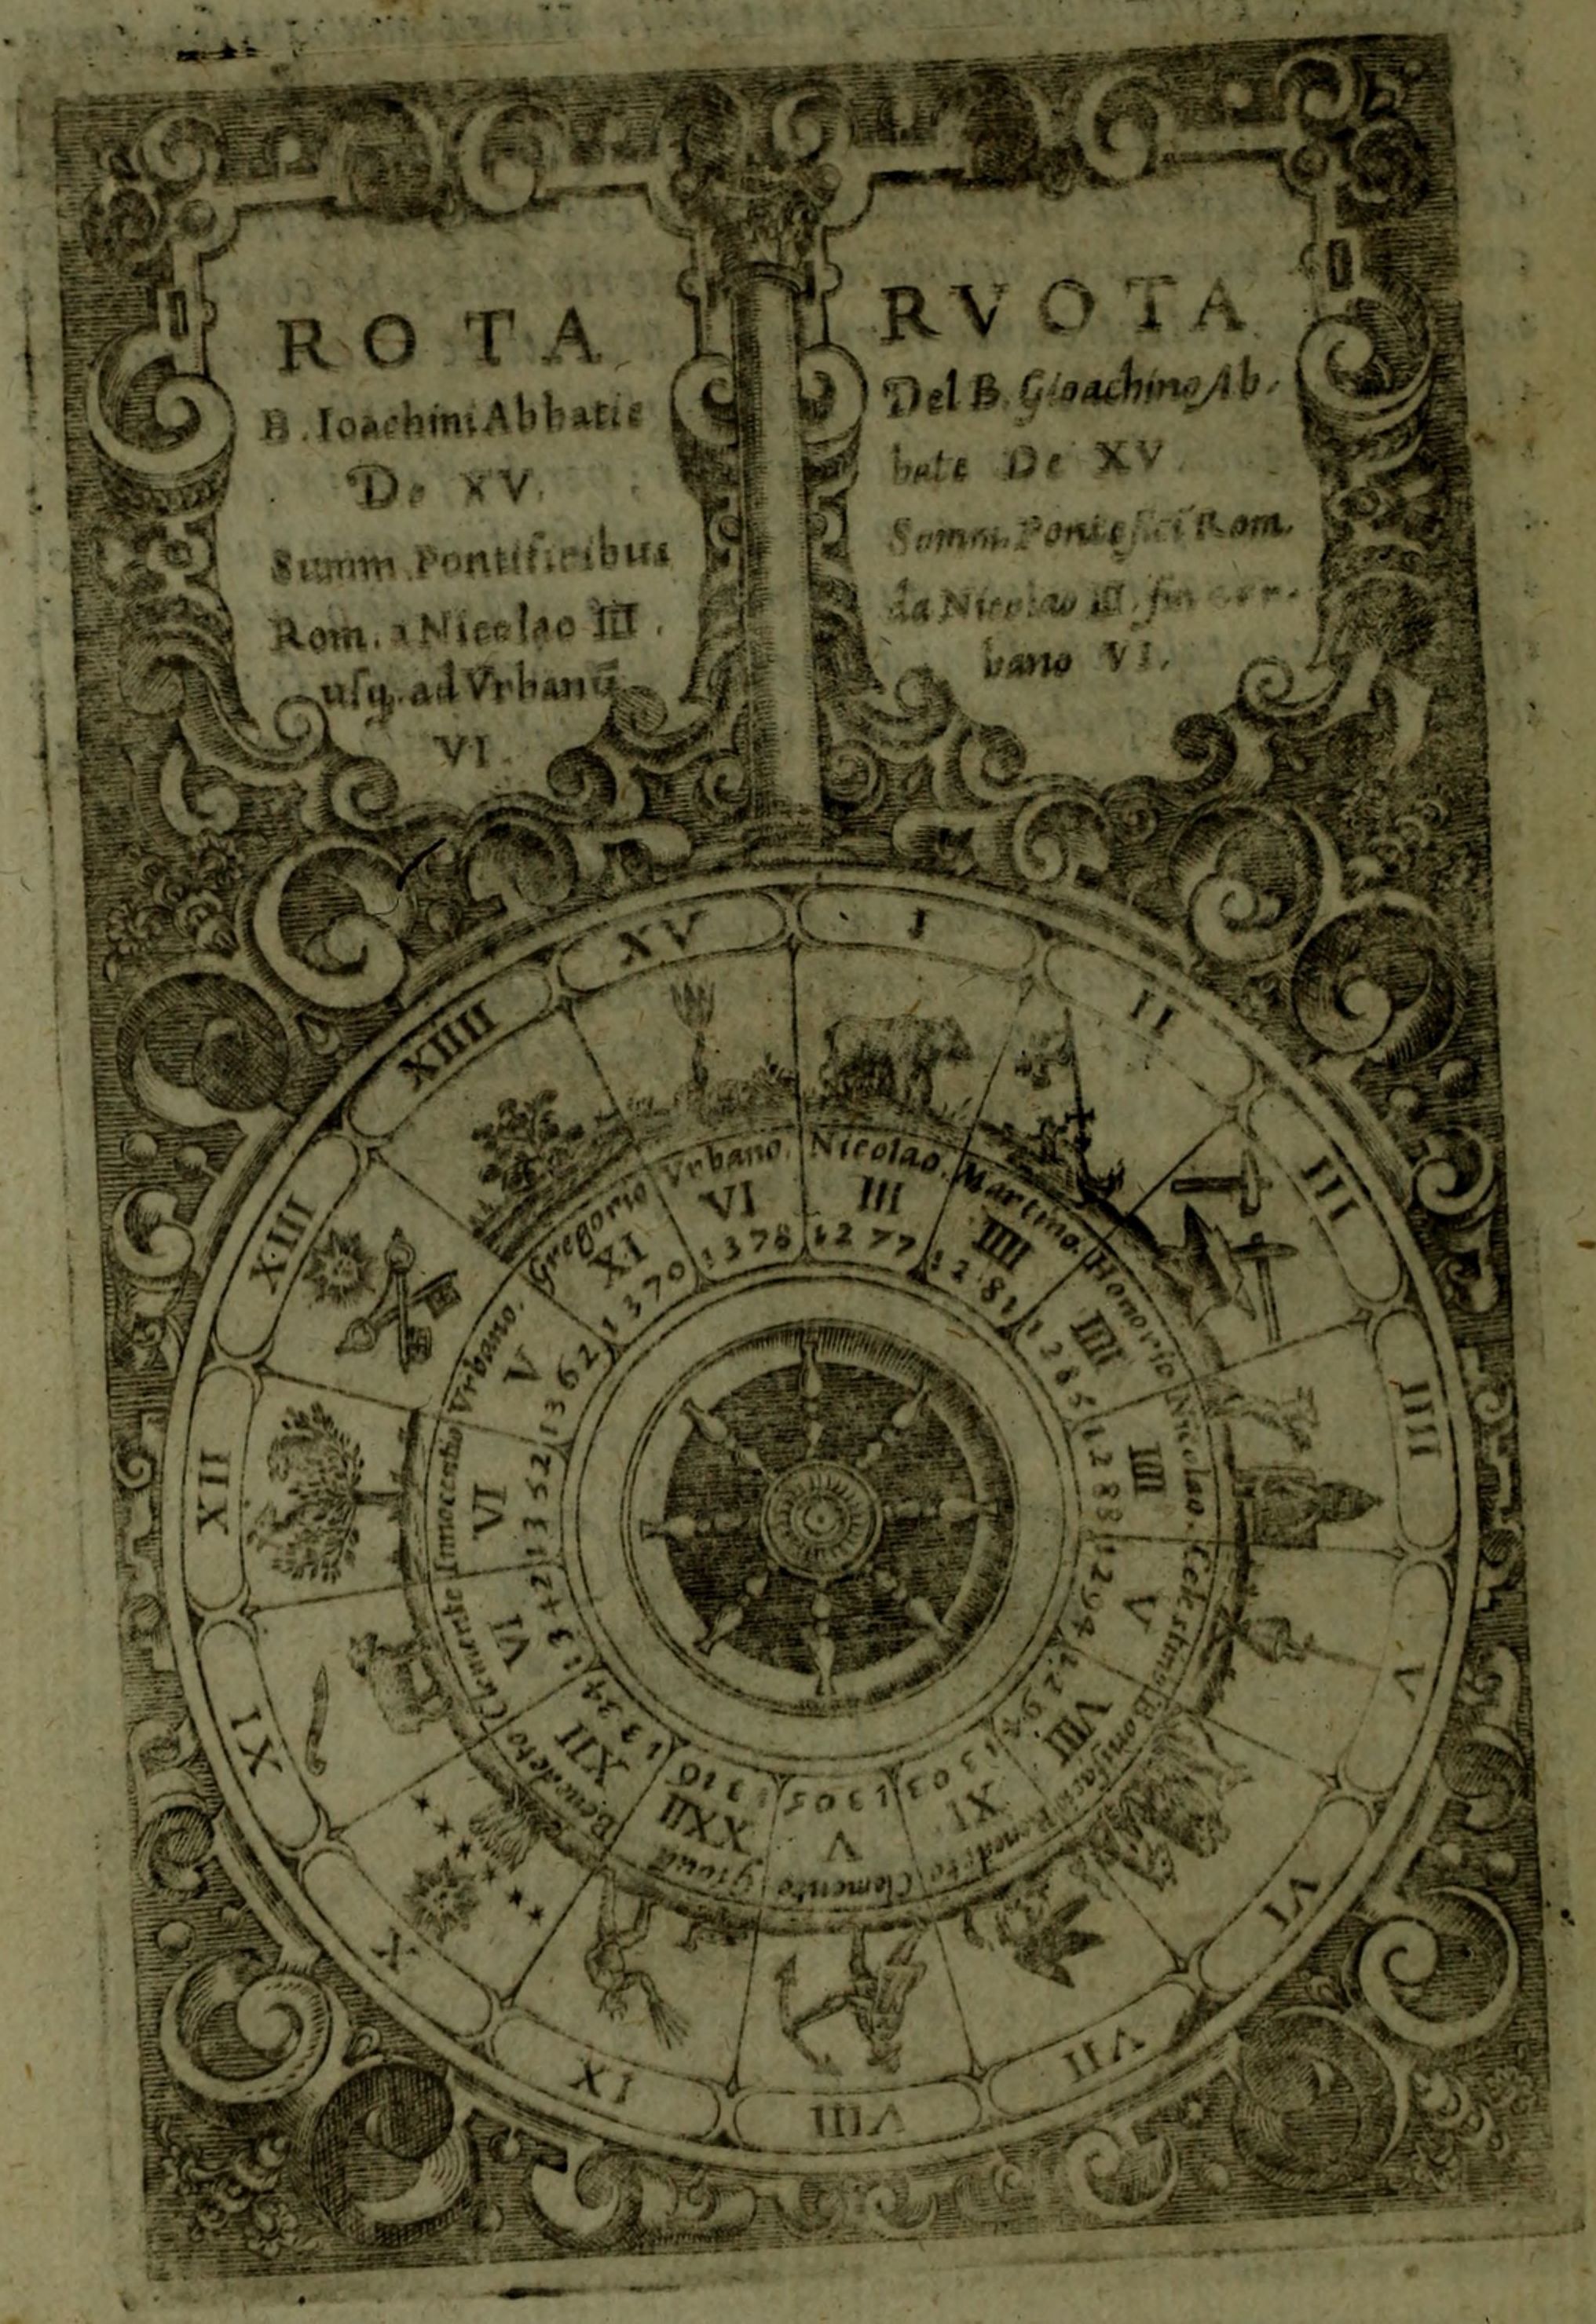 ROTA
B. Ioachini Abbatis
De XV.
Summ. Pontificibus
Rom. a Nicolao III.
usq. ad Vrbanū
VI.
RVOTA
Del B. Gioachino Ab.
bate De XV
Summ. Pontefici Rom.
da Nicolao III. fin
bano VI.
I
II
III
IIII
V
VI
VII
VIII
IX
X
XI
XII
XIII
XIIII
XV
Nicolao.
III
1277
Martino.
IIII
1281
Honorio
IIII
1285
Nicolao.
IIII
1288
Celestino
V
1294
Bonifacio
VIII
1294
Benedeto
XI
1303
Clemente
V
1305
Giouā
XXII
1316
Benedeto
XII
1334
Clemente
VI
1342
Innocentio
VI
1352
Vrbano.
V
1362
Gregorio
XI
1370
Vrbano.
VI
1378